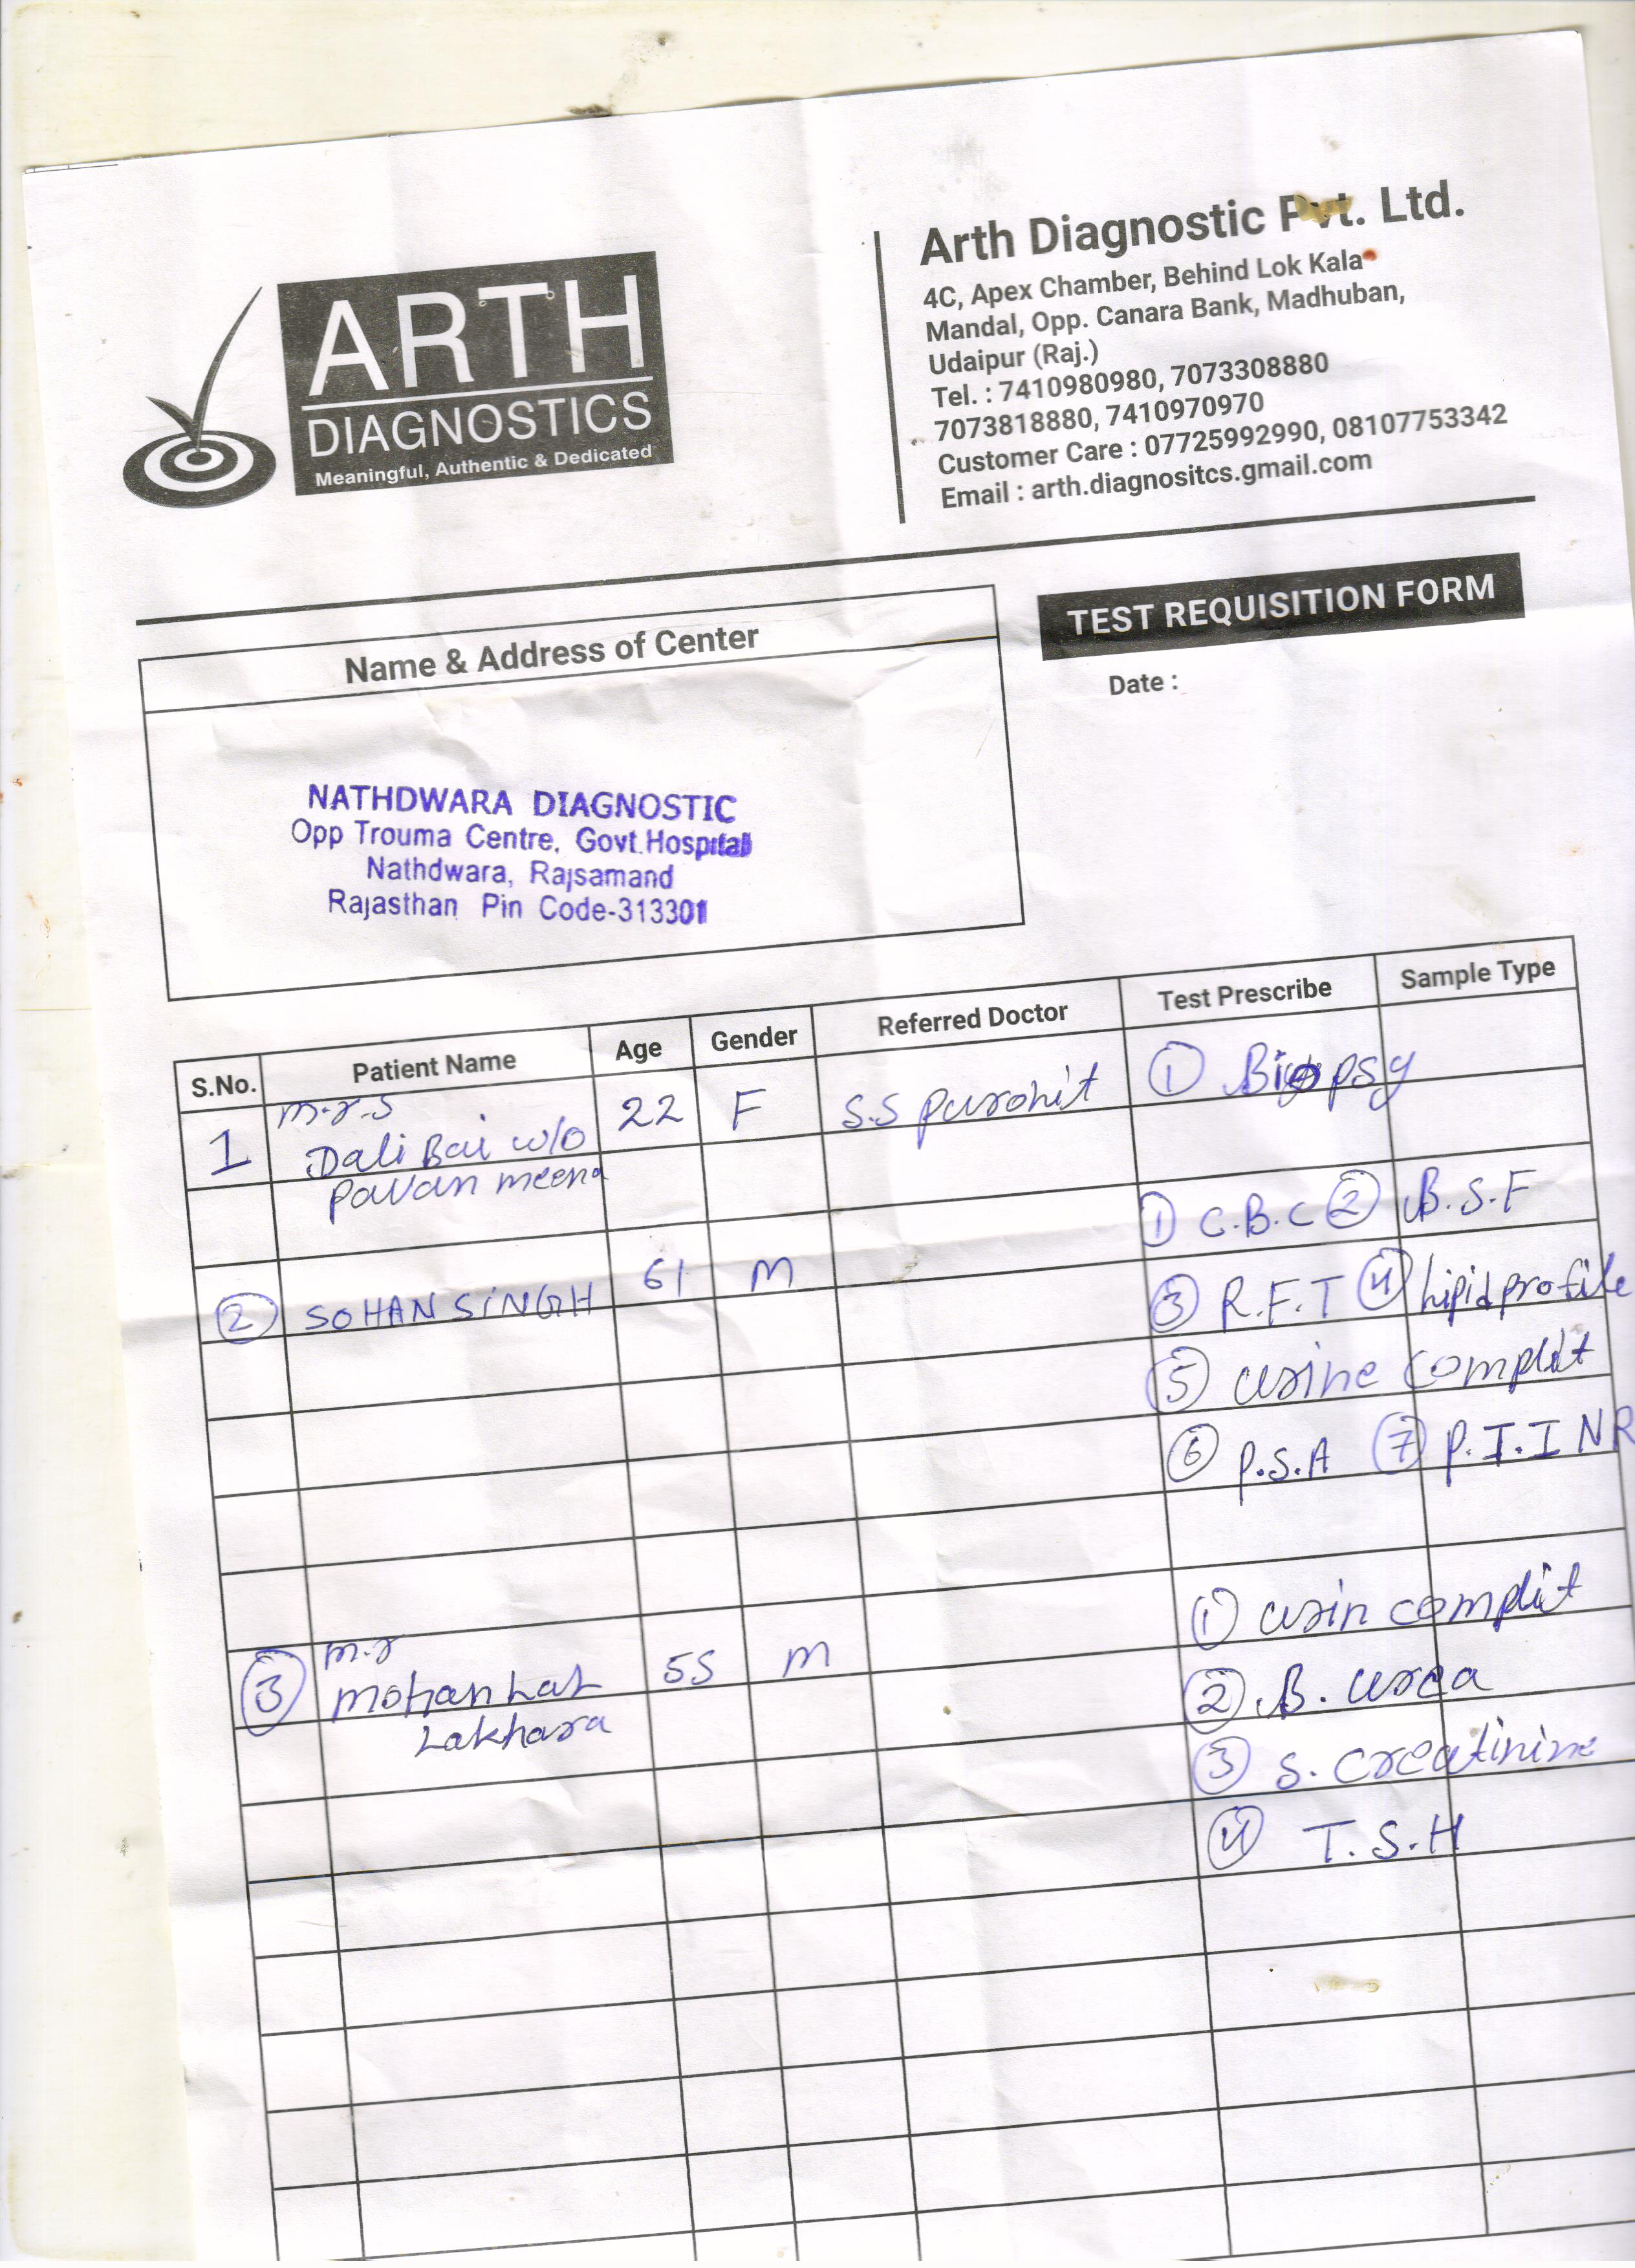 ARTH
DIAGNOSTICS
Meaningful, Authentic & Dedicated
Arth Diagnostic Pvt. Ltd.
4C, Apex Chamber, Behind Lok Kala
Mandal, Opp. Canara Bank, Madhuban,
Udaipur (Raj.)
Tel. : 7410980980, 7073308880
7073818880, 7410970970
Customer Care : 07725992990, 08107753342
Email : arth.diagnositcs.gmail.com
TEST REQUISITION FORM
Date :
Name & Address of Center
NATHDWARA DIAGNOSTIC
Opp Trouma Centre, Govt.Hospital
Nathdwara, Rajsamand
Rajasthan Pin Code-313301
S.No. Patient Name Age Gender Referred Doctor Test Prescribe Sample Type
m.r.s
1 Dali Bai w/o 22 F S.S purohit ① Biopsy
pavan meena
① C.B.C ② B.S.F
② SOHAN SiNGH 61 M ③ R.F.T ④ Lipid profile
⑤ urine complit
⑥ P.S.A ⑦ P.T.I NR
① urin complit
m.r
③ mohan Lal 55 M ② B. urea
Lakhara
③ S. creatinine
④ T.S.H